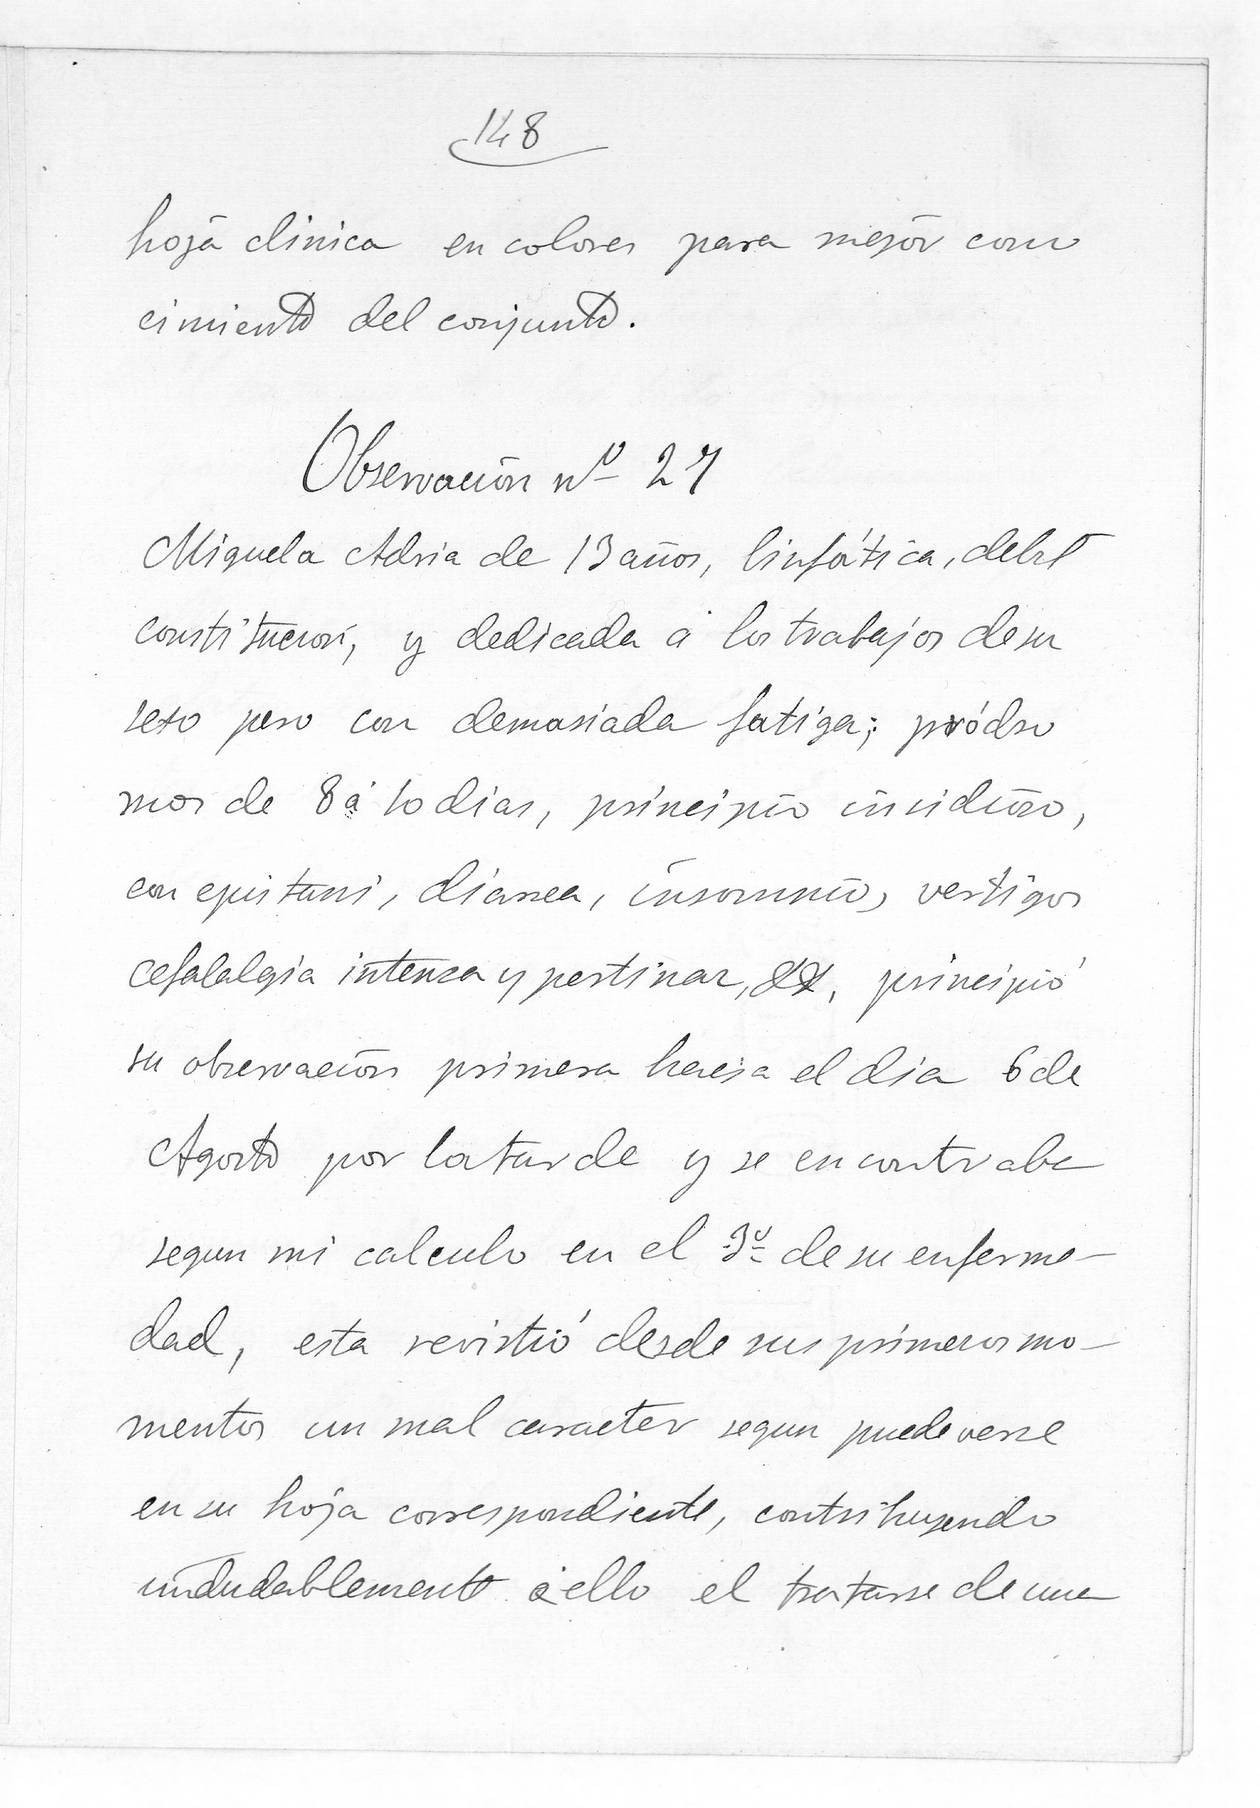 148
hoja clinica en colores para mejor cono
cimiento del conjunto.
Observación nº 27
Miguela Adria de 13 años, linfática, debil
constitución, y dedicada á los trabajos de su
sexo pero con demasiada fatiga; pródro
mos de 8 á 10 dias, principio insidioso,
con epistaxis, diarrea, insomnio, vertigos
cefalalgia intensa y pertinaz, &&, principió
su observación primera hacia el dia 6 de
Agosto por la tarde y se encontraba
segun mi calculo en el 3º de su enferme-
dad, esta revistió desde sus primeros mo-
mentos un mal caracter segun puede verse
en su hoja correspondiente, contribuyendo
indudablemente á ello el tratarse de una